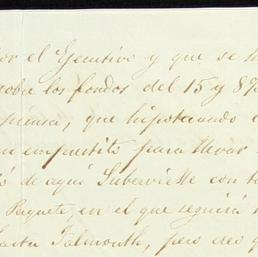 por el Ejecutivo y que se h
sobre los fondos del 15 y 8%
piensa, que hipotecando e
un empréstito para llevar
ió de aquí Suberville con to
Paquete, en el que seguirá
hasta Falmouth, pero creo q